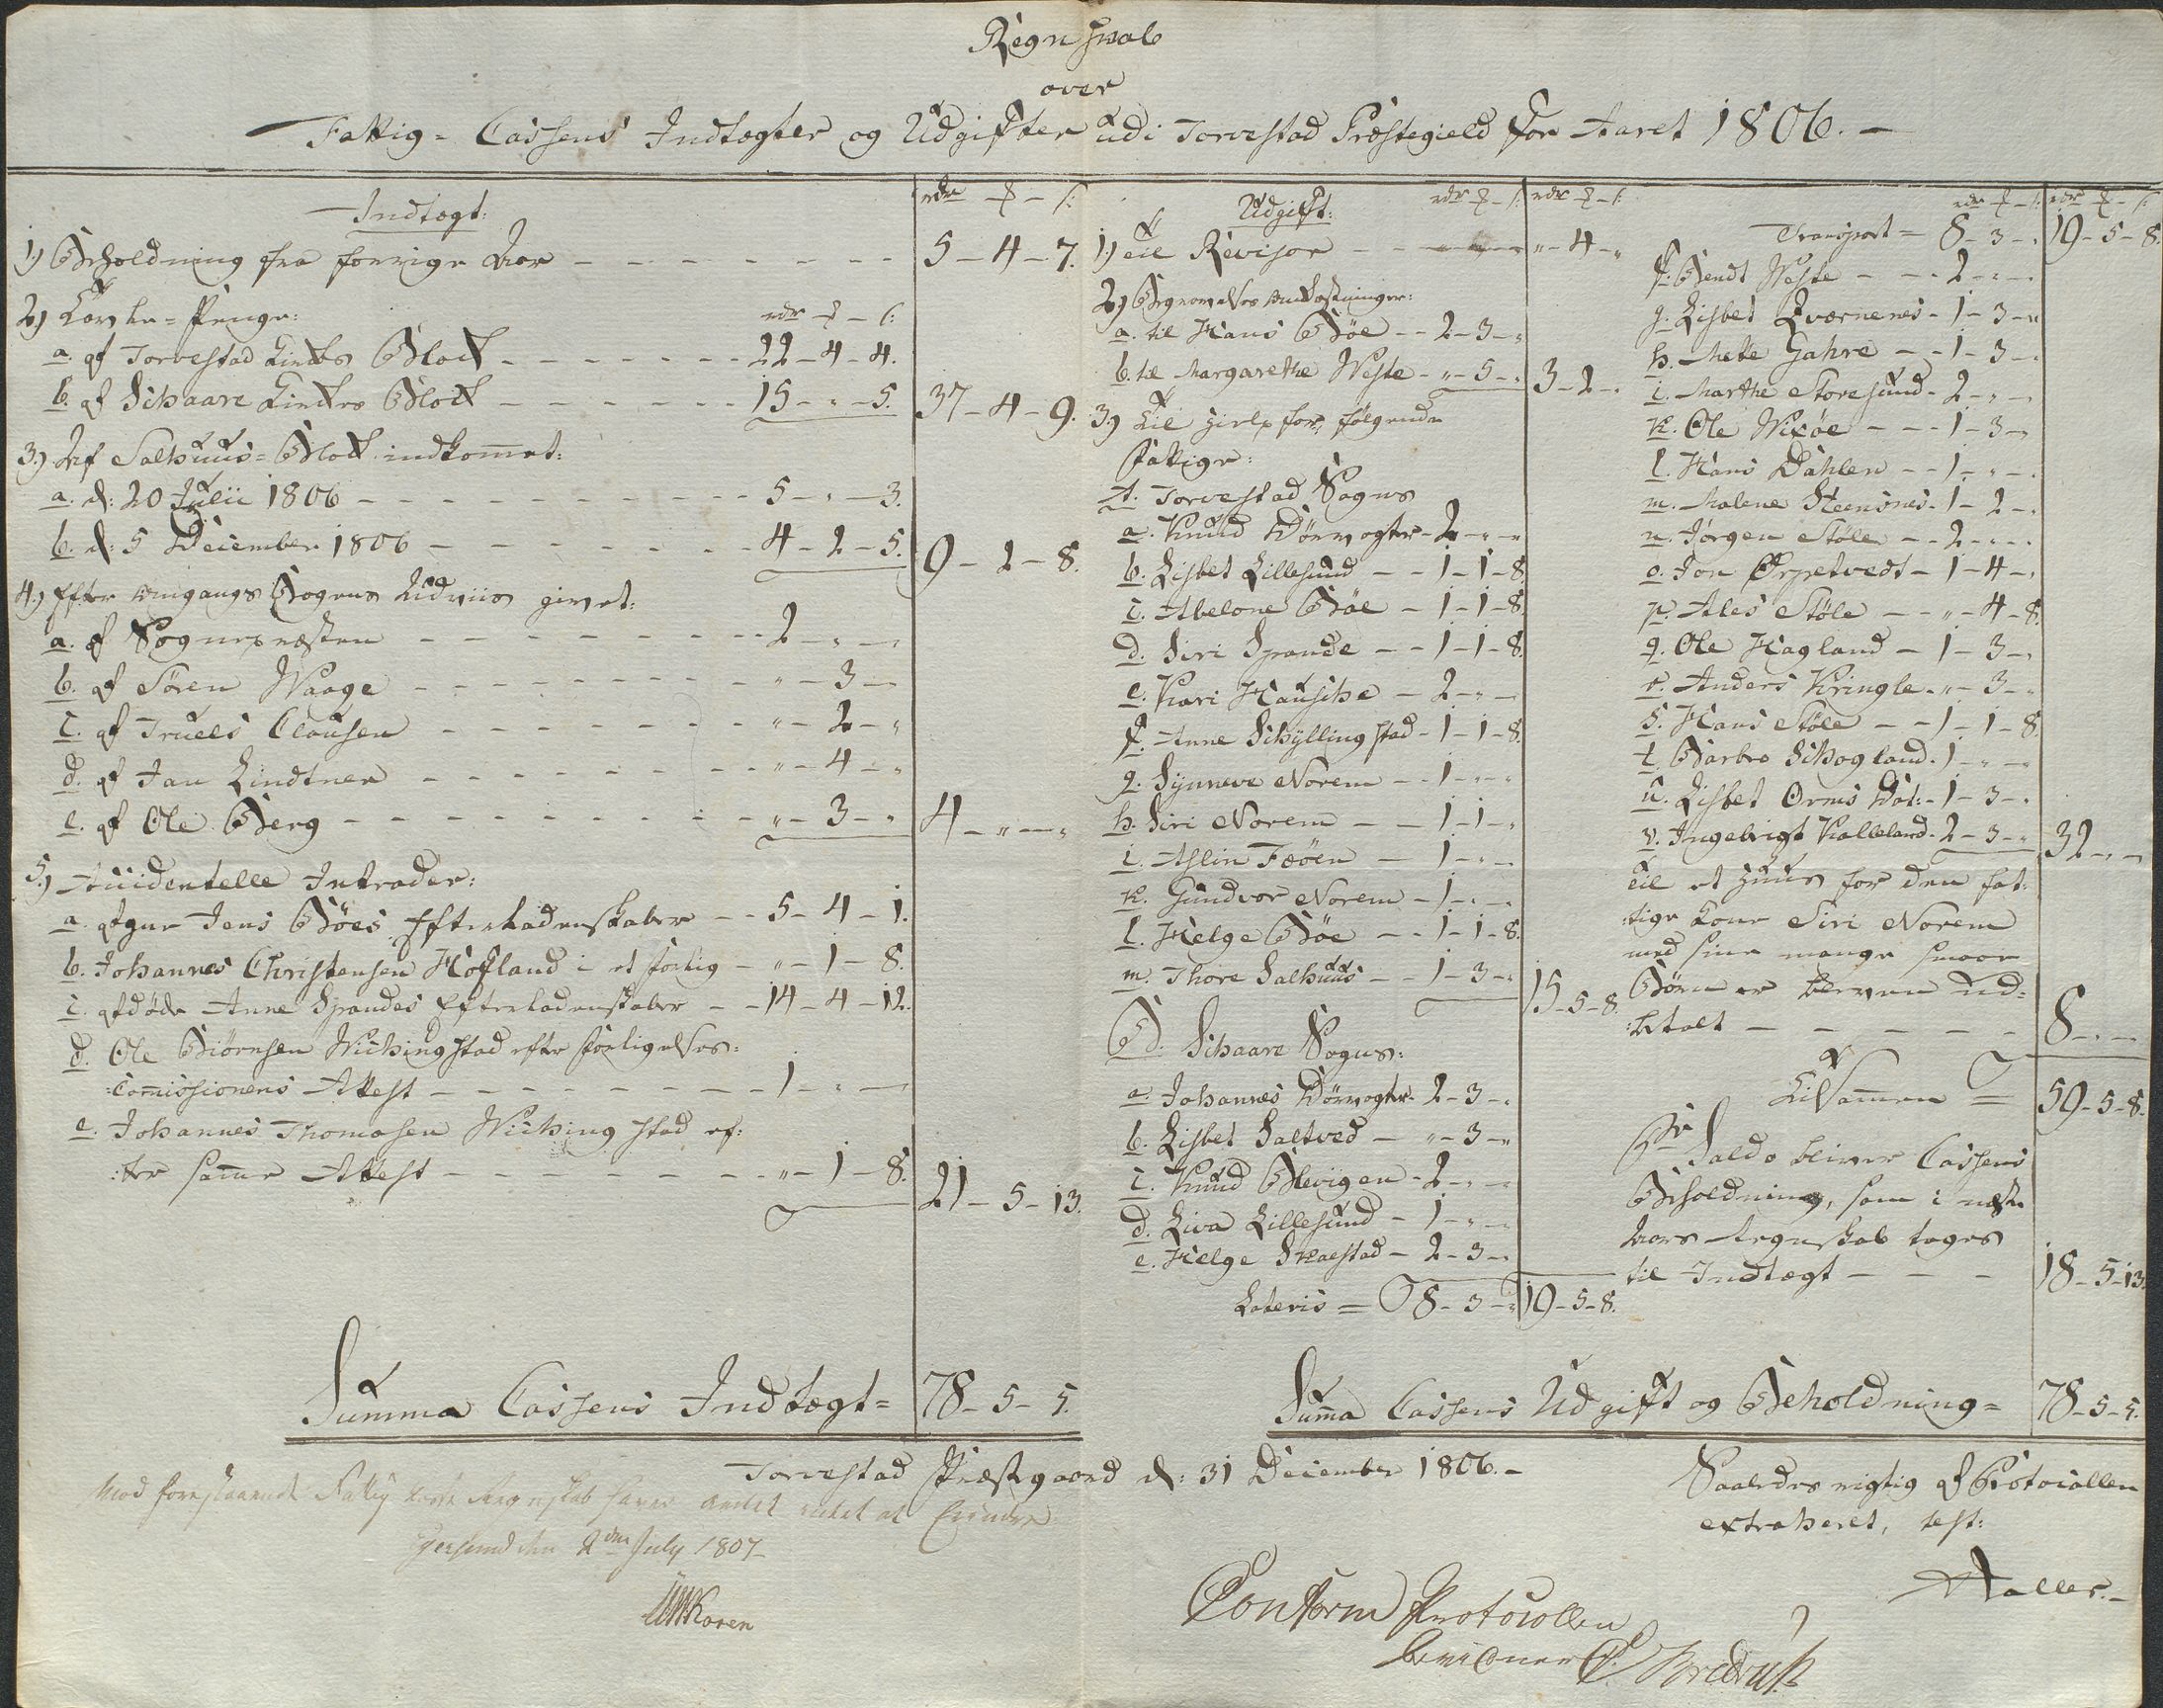 Regnskab
over
Fattig-Cassens Indtægter og Udgifter udi Torvestad Præstegield for Aaret 1806.
Indtægt:
rdr - ₰ - ß:
1) Beholdning fra forrige Aar - - - 5 - 4 - 7.
2) Tavle-Penge: rdr - ₰ - ß:
a. af Torvestad Kirkes Blok - - - 22 - 4 - 4.
b. af Schaare Kirkes Blok - - - 15 - " - 5. 37 - 4 - 9.
3.) Af Salhuus-Blok indkommet:
a. d: 20 Julii 1806 - - - 5 - " - 3.
b. d: 5 December 1806 - - - 4 - 2 - 5. 9 - 2 - 8.
4.) Efter Omgangs Bogens Udviis givet:
a. af Sognepræsten - - - 2 - " - "
b. af Søren Waage - - - " - 3 - "
c. af Truels Clausen - - - " - 2 - "
d. af Jan Lindtner - - - " - 4 - "
e. af Ole Berg - - - " - 3 - " 4 - " - "
5.) Accidentelle Intrader:
a. afgne Jens Bøes Efterladenskaber - - 5 - 4 - 1.
b. Johannes Christensen Hofland i et Forlig - " - 1 - 8.
c. afdøde Anne Spandes Efterladenskaber - - 14 - 4 - 12.
d. Ole Biørnsen Wichingstad efter Forligelses-
Comissionens Attest - - - 1 - " - "
e. Johannes Thomasen Wichingstad ef-
ter samme Attest - - - " - 1 - 8. 21 - 5 - 13.
Summa Cassens Indtægt = 78 - 5 - 5.
Udgift: rdr ₰ - ß: rdr ₰ - ß:
1) til Revisor - - - " - 4 - "
2) Begravelses Omkostninger:
a. til Hans Bøe - - 2 - 3 - "
b. til Margarethe Weste - " - 5 - " 3 - 2 - "
3.) Til Hielp for følgende
Fattige:
A. Torvestad Sogns
a. Knud Dørvogter - 2 - " - "
b. Lisbet Lillesund - - 1 - 1 - 8.
c. Abelone Bøe - 1 - 1 - 8.
d. Siri Spande - - 1 - 1 - 8.
e. Kari Hausche - 2 - " - "
f. Anne Schyllingstad - 1 - 1 - 8.
g. Synneve Norem - - 1 - " - "
h. Siri Norem - - 1 - 1 - "
i. Aslin Fæøen - 1 - " - "
k. Gundvor Norem - 1 - " - "
l. Helge Bøe - - 1 - 1 - 8.
m. Thore Salhuus - - 1 - 3 - " 15 - 5 - 8.
B. Schaare Sogns:
a. Johannes Dørvogter - 2 - 3 - "
b. Lisbet Saltved - " - 3 - "
c. Knud Blevigen - 2 - " - "
d. Liva Lillesund - 1 - " - "
e. Helge Skaestad - 2 - 3 - "
Lateris = 8 - 3 - " 19 - 5 - 8.
rdr ₰ - ß: rdr ₰ - ß:
Transport = 8 - 3 - " 19 - 5 - 8.
f. Bendt Weste - - 2 - " - "
g. Lisbet Qværnenes - 1 - 3 - "
h. Mette Gahre - - 1 - 3 - "
i. Marthe Storesund - 2 - " - "
k. Ole Wixøe - - 1 - 3 - "
l. Hans Dahlen - - 1 - " - "
m. Malene Steensnes - 1 - 2 - "
n. Jørgen Støle - - 2 - " - "
o. Jon Ørpetvedt - 1 - 4 - "
p. Ales Støle - - " - 4 - 8.
q. Ole Hagland - 1 - 3 - "
r. Anders Kringle - " - 3 - "
s. Hans Støle - - 1 - 1 - 8.
t. Barbro Schogland - 1 - " - "
u. Lisbet Orms Dat: - 1 - 3 - "
v. Ingebrigt Kalleland - 2 - 3 - " 32 - " - "
Til et Huus for den fat-
tige Kone Siri Norem
med sine mange smaae
Børn er bleven ud-
betalt - - - 8 - " - "
Tilsammen = 59 - 5 - 8.
Pr Saldo bliver Cassens
Beholdning, som i næste
Aars Regnskab tages
til Indtægt - - - 18 - 5 - 13.
Summa Cassens Udgift og Beholdning = 78 - 5 - 5.
Torvestad Præstgaard d: 31 December 1806.
Saaledes rigtig af Protocollen
extraheret, test:
Aaller.
Mod forestaaende Fattig Casse Regnskab haves andet intet at Erindre
den 2den July 1807
UWKoren
Conform Protocollen
bevidner